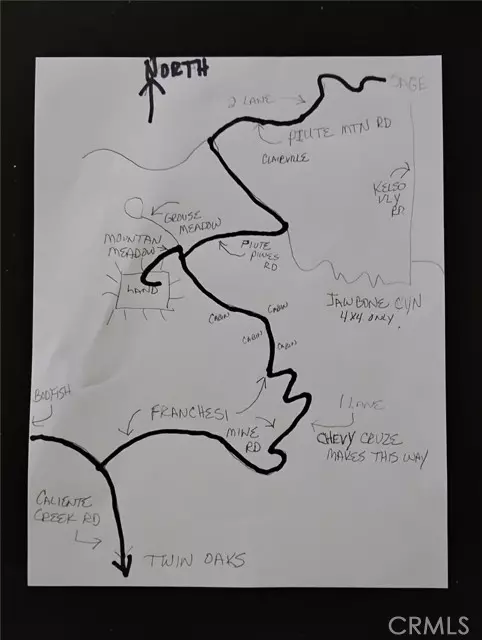 NORTH
2 LANE
PIUTE MTN RD
CLAIRVILLE
KELSO
VLY
RD
GROUSE
MEADOW
MOUNTAN
MEADOW
PIUTE
PINES
RD
LAND
JAWBONE CYN
4X4 ONLY
CABIN
CABIN
CABIN
CABIN
BODFISH
FRANCHESI
MINE
RD
1 LANE
CHEVY CRUZE
MAKES THIS WAY
CALIENTE
CREEK RD
TWIN OAKS
CRMLS